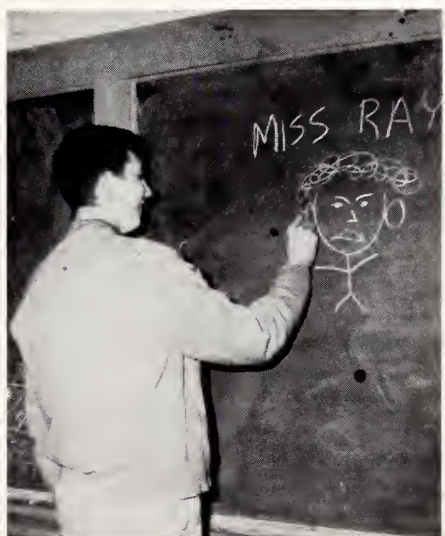 MISS RAY